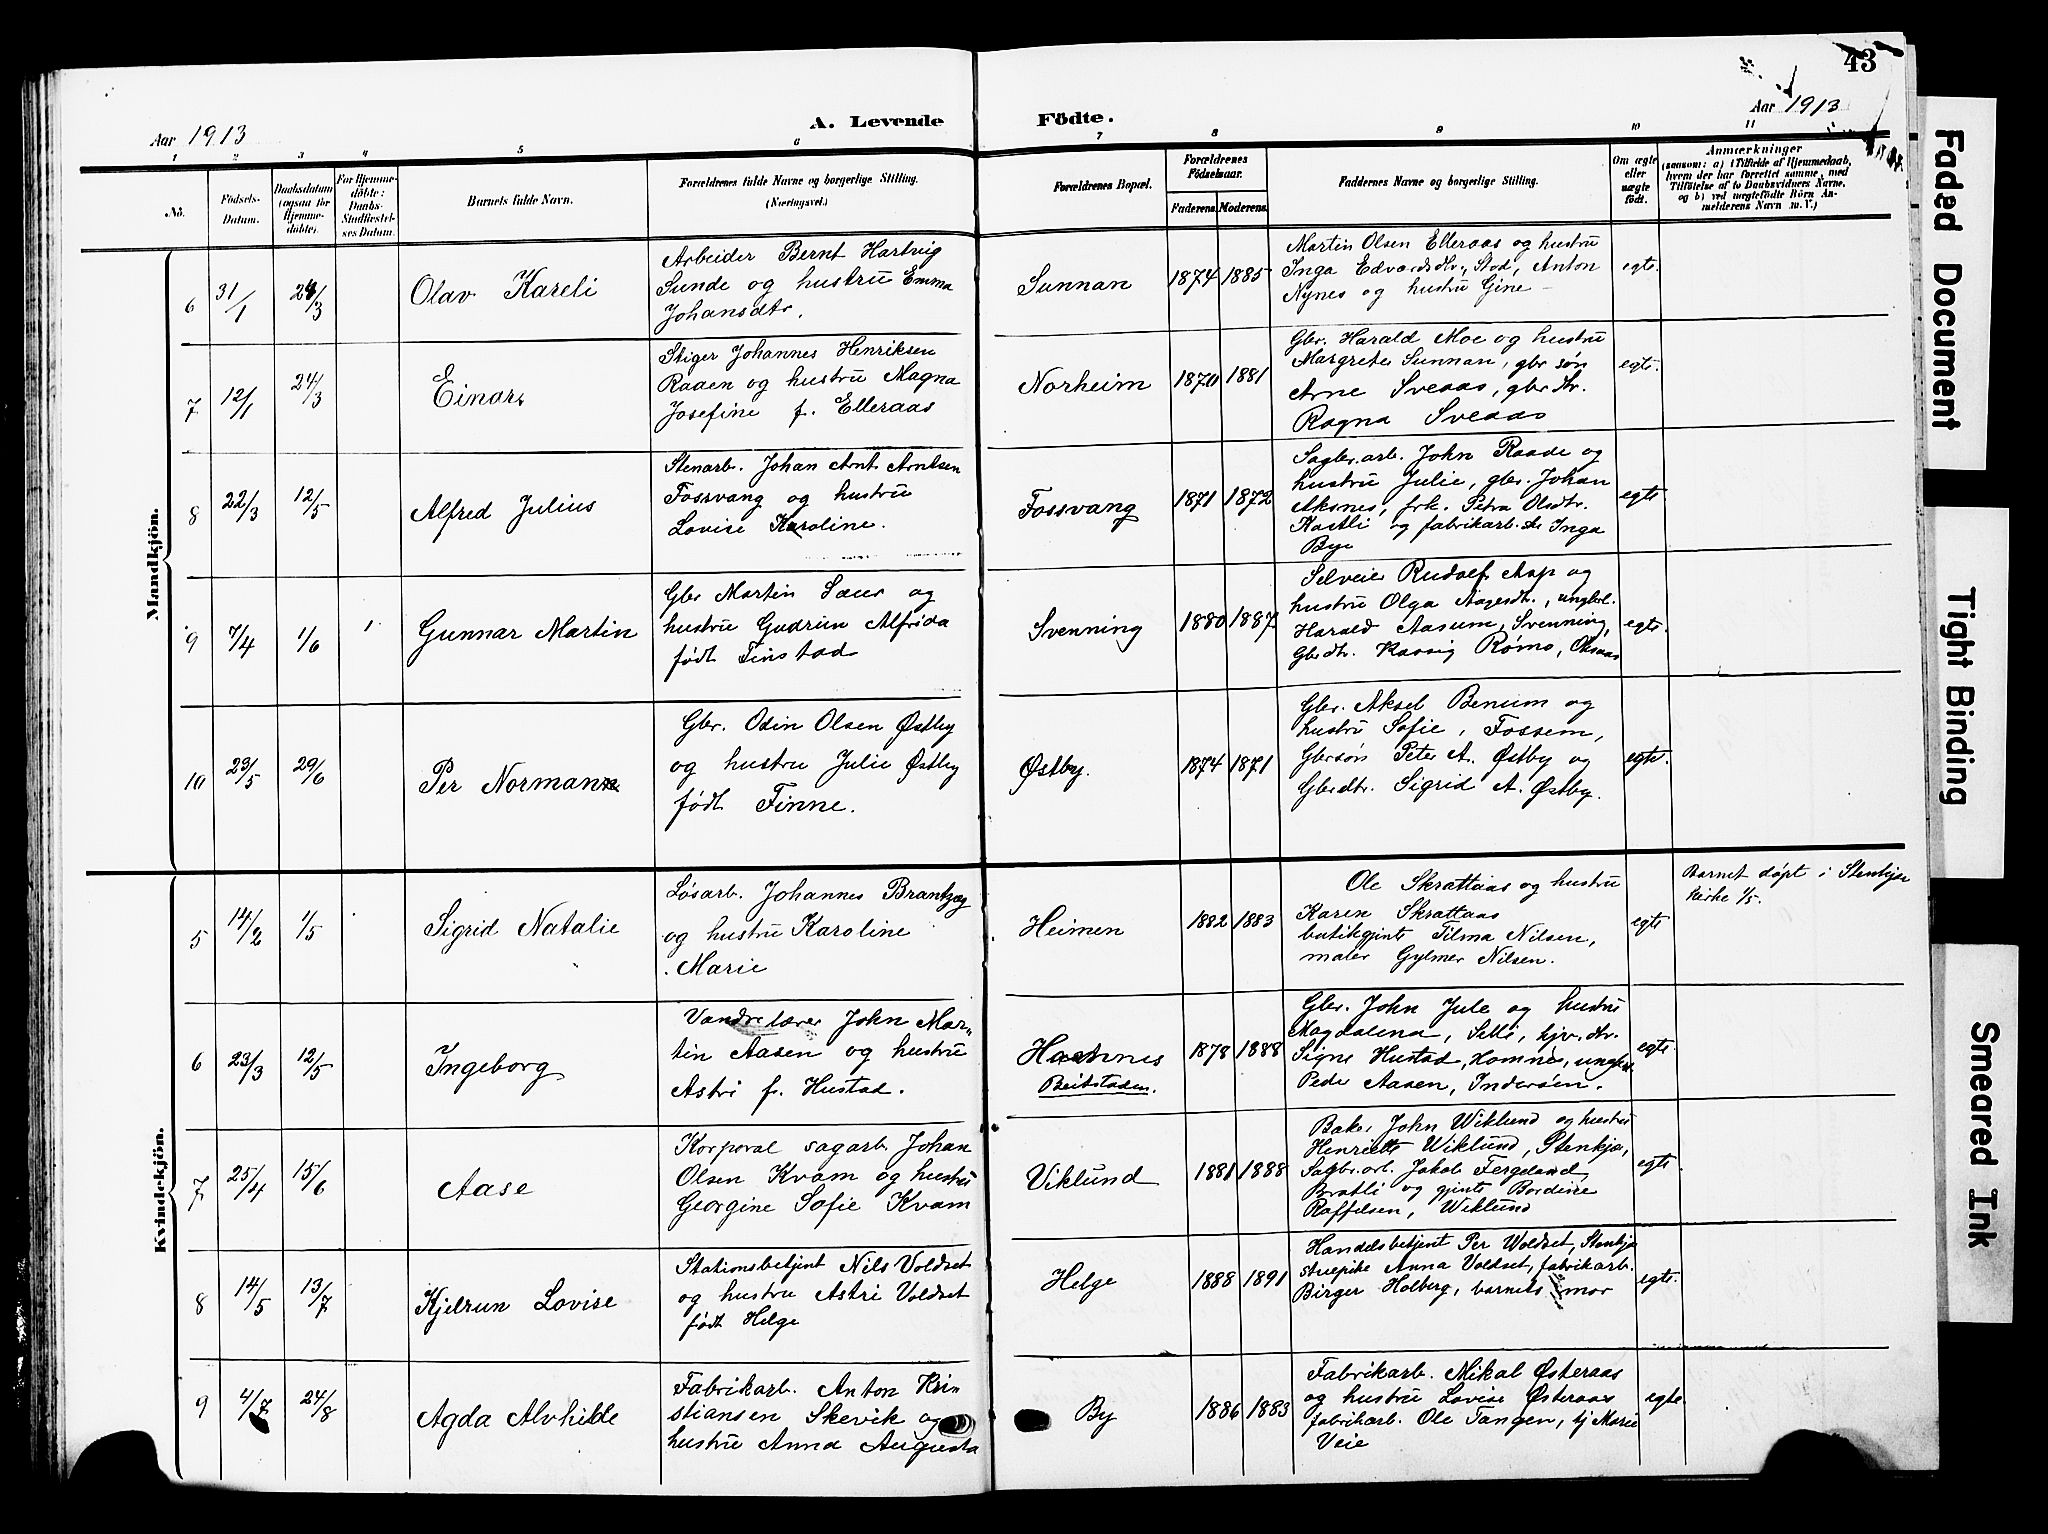 43
Aar 1913
A. Levende
Födte.
Aar 1913
1 2 3 4 5 6 7 8 9 10 11
No.
Födsels-
Datum.
Daabsdatum
(ogsaa for
Hjemme-
döbte).
For Hjemme-
döbte:
Daabs-
Stadfæstel-
ses Datum.
Barnets fulde Navn.
Forældrenes fulde Navne og borgerlige Stilling.
(Næringsvei.)
Forældrenes Bopæl.
Forældrenes
Födselsaar.
Faderens. Moderens.
Faddernes Navne og borgerlige Stilling.
Om ægte
eller
uægte
födt.
Anmærkninger
(saasom: a) i Tilfælde af Hjemmedaab,
hvem der har forrettet samme, med
Tilföielse af to Daabsvidners Navne,
og b) ved uægtefödte Börn An-
melderens Navn m. V.)
Mandkjön.
6
31/1
24/3
Olav Kareli
Arbeider Bernt Hartvig
Sunde og hustru Emma
Johansdtr.
Sunnan
1874 1885
Martin Olsen Elleraas og hustru
Inga Edvardsdtr., Stod, Anton
Nynes og hustru Gine
egte.
7
12/1
24/3
Einar
Stiger Johannes Henriksen
Raaen og hustru Magna
Josefine f. Elleraas
Norheim
1870 1881
Gbr. Harald Moe og hustru
Margrete Sunnan, gbr søn
Arne Sveaas, gbr dtr.
Ragna Sveaas
egte.
8
22/3
12/5
Alfred Julius
Stenarb. Johan Arnt Arntsen
Fossvang og hustru
Lovise Karoline.
Fossvang
1871 1872
Sagbr. arb. John Raade og
hustru Julie, gbr. Johan
Aksnes, frk. Petra Olsdtr.
Kastli og fabrikarb. Inga
Bye
egte
9
7/4
1/6
1
Gunnar Martin
Gbr Martin Saur og
hustru Gudrun Alfrida
født Finstad
Svenning
1880 1887
Selveier Rudolf Asp og
hustru Olga Aagesdtr., ungkrl.
Harald Aasum, Svenning,
Gbrdtr. Rømo,
egte.
10
23/5
29/6
Per Normann
Gbr. Odin Olsen Østby
og hustru Julie Østby
født Finne.
Østby.
1874 1871
Gbr. Aksel Benum og
hustru Sofie, Fossem,
Gbrsøn Peter A. Østby og
Gbrdtr. Sigrid A. Østby.
egte
Kvindekjön.
5
14/2
1/5
Sigrid Natalie
Løsarb. Johannes Brantzæg
og hustru Karoline
Marie
Heimen
1882 1883
Ole Skrattaas og hustru
Karen Skrattaas
butikgjente Tilma Nilsen,
maler Gylmer Nilsen.
egte
Barnet døpt i Stenkjer
kirke 1/5.
6
23/3
12/5
Ingeborg
Vandrelærer John Mar-
tin Aasen og hustru
Astri f. Hustad.
Beitstaden.
1878 1888
Gbr. John Jule og hustru
Magdalena, Selli, hjv. dtr.
Signe Hustad, ungkrl.
Peder Aasen, Inderøen.
egte.
7
25/4
15/6
Aase
Korporal sagarb. Johan
Olsen Kvam og hustru
Georgine Sofie Kvam
Viklund
1881 1888
Baker John Wiklund og hustru
Henriette Wiklund, Stenkjær,
Sagbr. arb. Jakob Fergeland,
Bratli og gjente Bordine
Raffelsen, Wiklund
egte.
8
14/5
13/7
Kjelrun Lovise
Stationsbetjent Nils Voldset
og hustru Astri Voldset
født Helge
Helge
1888 1891
Handelsbetjent Per Woldset, Stenkjær
stuepike Anna Voldset, fabrikarb.
Birger Holberg, barnets mor
egte.
9
4/7
24/8
Agda Alvhilde
Fabrikarb. Anton Kri-
stiansen Skevik og
hustru Anna Augusta
By
1886 1883
Fabrikarb. Mikal Østeraas
og hustru Lovise Østeraas
fabrikarb. Ole Tangen, tj Marie
Veie
egte.
Faded Document
Tight Binding
Smeared Ink